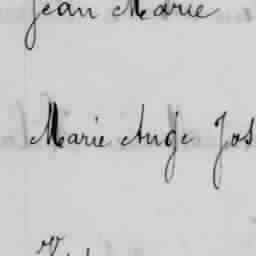 Jean Marie
Marie Ange Jos